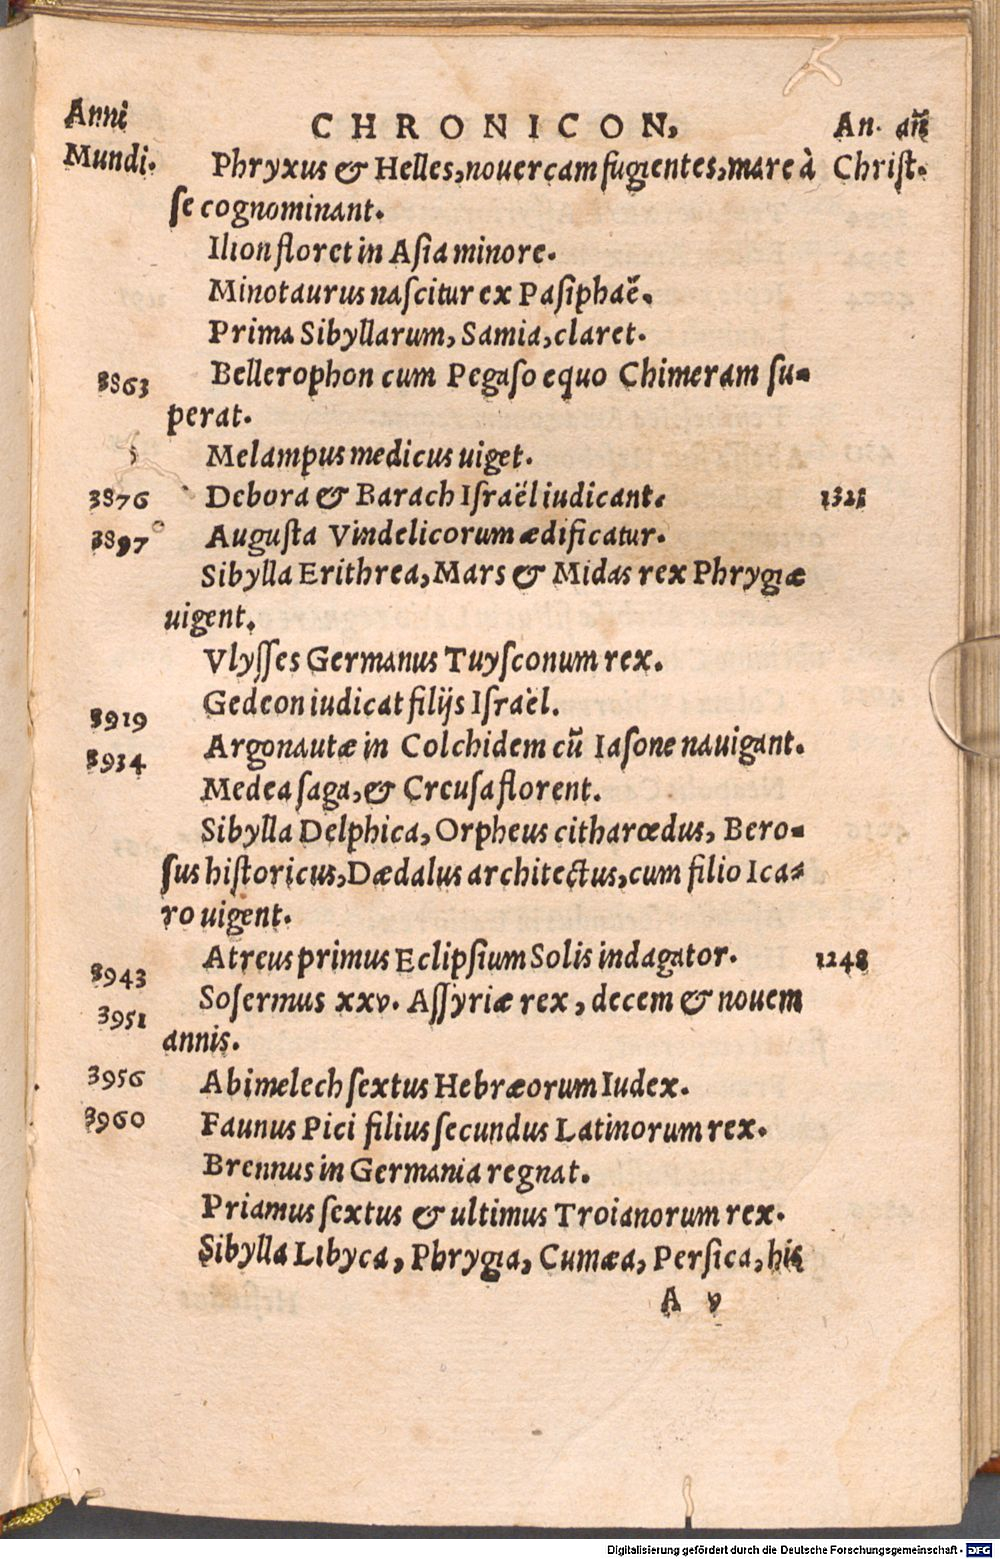 Anni CHRONICON, An. añ
Mundi. Phryxus & Helles, nouercam fugientes, mare à Christ.
se cognominant.
Ilion floret in Asia minore.
Minotaurus nascitur ex Pasiphaë.
Prima Sibyllarum, Samia, claret.
3863 Bellerophon cum Pegaso equo Chimeram su-
perat.
Melampus medicus uiget.
3876 Debora & Barach Israël iudicant. 1321
3897 Augusta Vindelicorum ædificatur.
Sibylla Erithrea, Mars & Midas rex Phrygiæ
uigent.
Vlysses Germanus Tuysconum rex.
3919 Gedeon iudicat filijs Israël.
3934 Argonautæ in Colchidem cū Iasone nauigant.
Medea saga, & Creusa florent.
Sibylla Delphica, Orpheus citharœdus, Bero-
sus historicus, Dædalus architectus, cum filio Ica-
ro uigent.
3943 Atreus primus Eclipsium Solis indagator. 1248
3951 Sosermus xxv. Assyriæ rex, decem & nouem
annis.
3956 Abimelech sextus Hebræorum Iudex.
3960 Faunus Pici filius secundus Latinorum rex.
Brennus in Germania regnat.
Priamus sextus & ultimus Troianorum rex.
Sibylla Libyca, Phrygia, Cumæa, Persica, his
A v
Digitalisierung gefördert durch die Deutsche Forschungsgemeinschaft - DFG